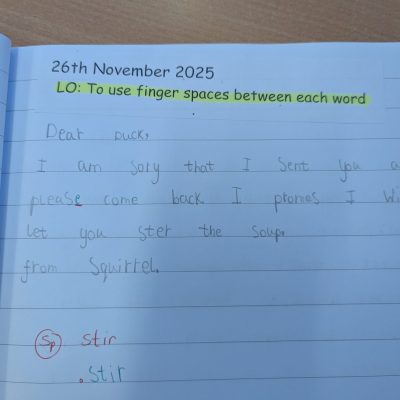 26th November 2025
LO: To use finger spaces between each word
Dear Duck,
I am sory that I sent you a
please come back I promes I wi
let you ster the soup.
from Squirrel.
Sp stir
.stir